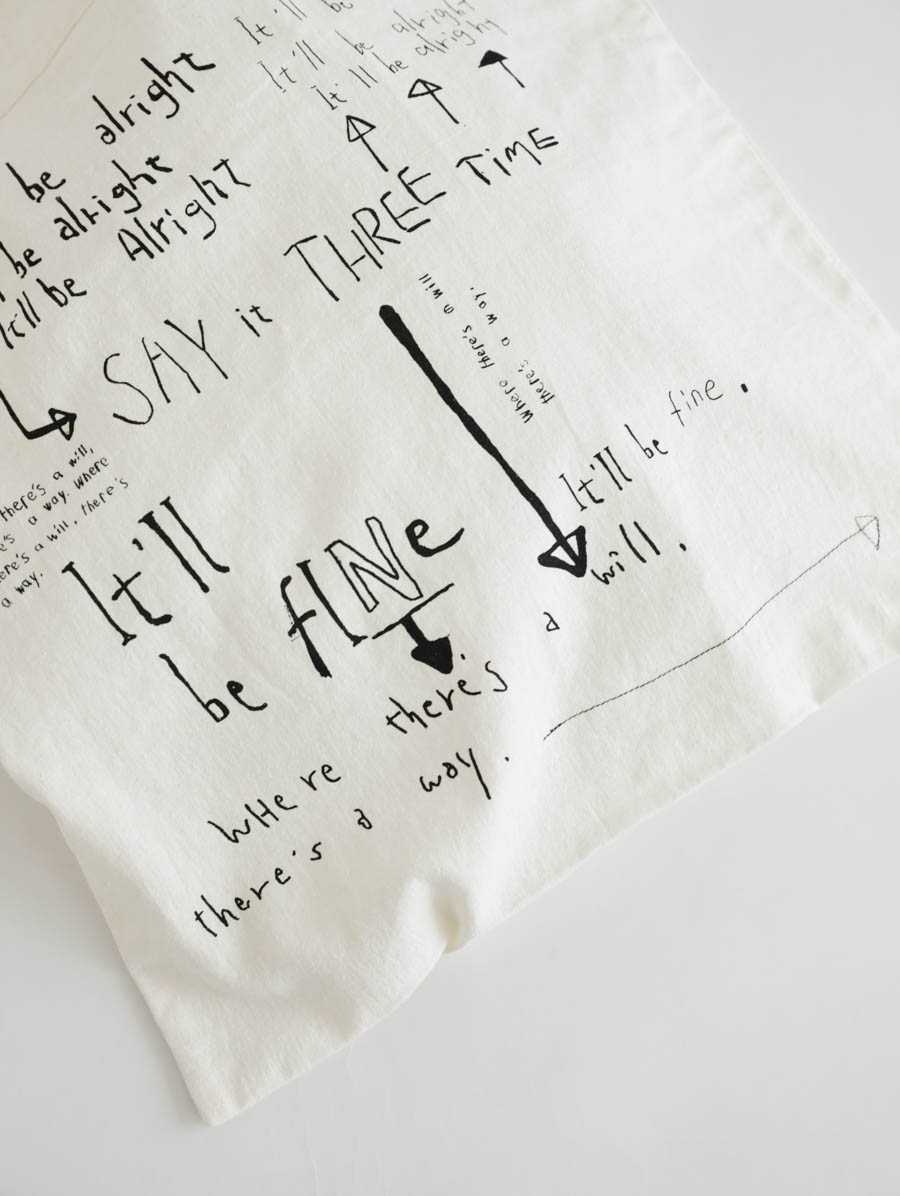 It'll be
It'll be alright
It'll be alrighy
be alright
be alright
It'll be Alright
SAY it THREE TIME
where there's a will
there's a way.
there's a will,
a way. where
a will, there's
a way.
It'll be fine.
It'll
be fINe
WHere there's a will.
there's a way.